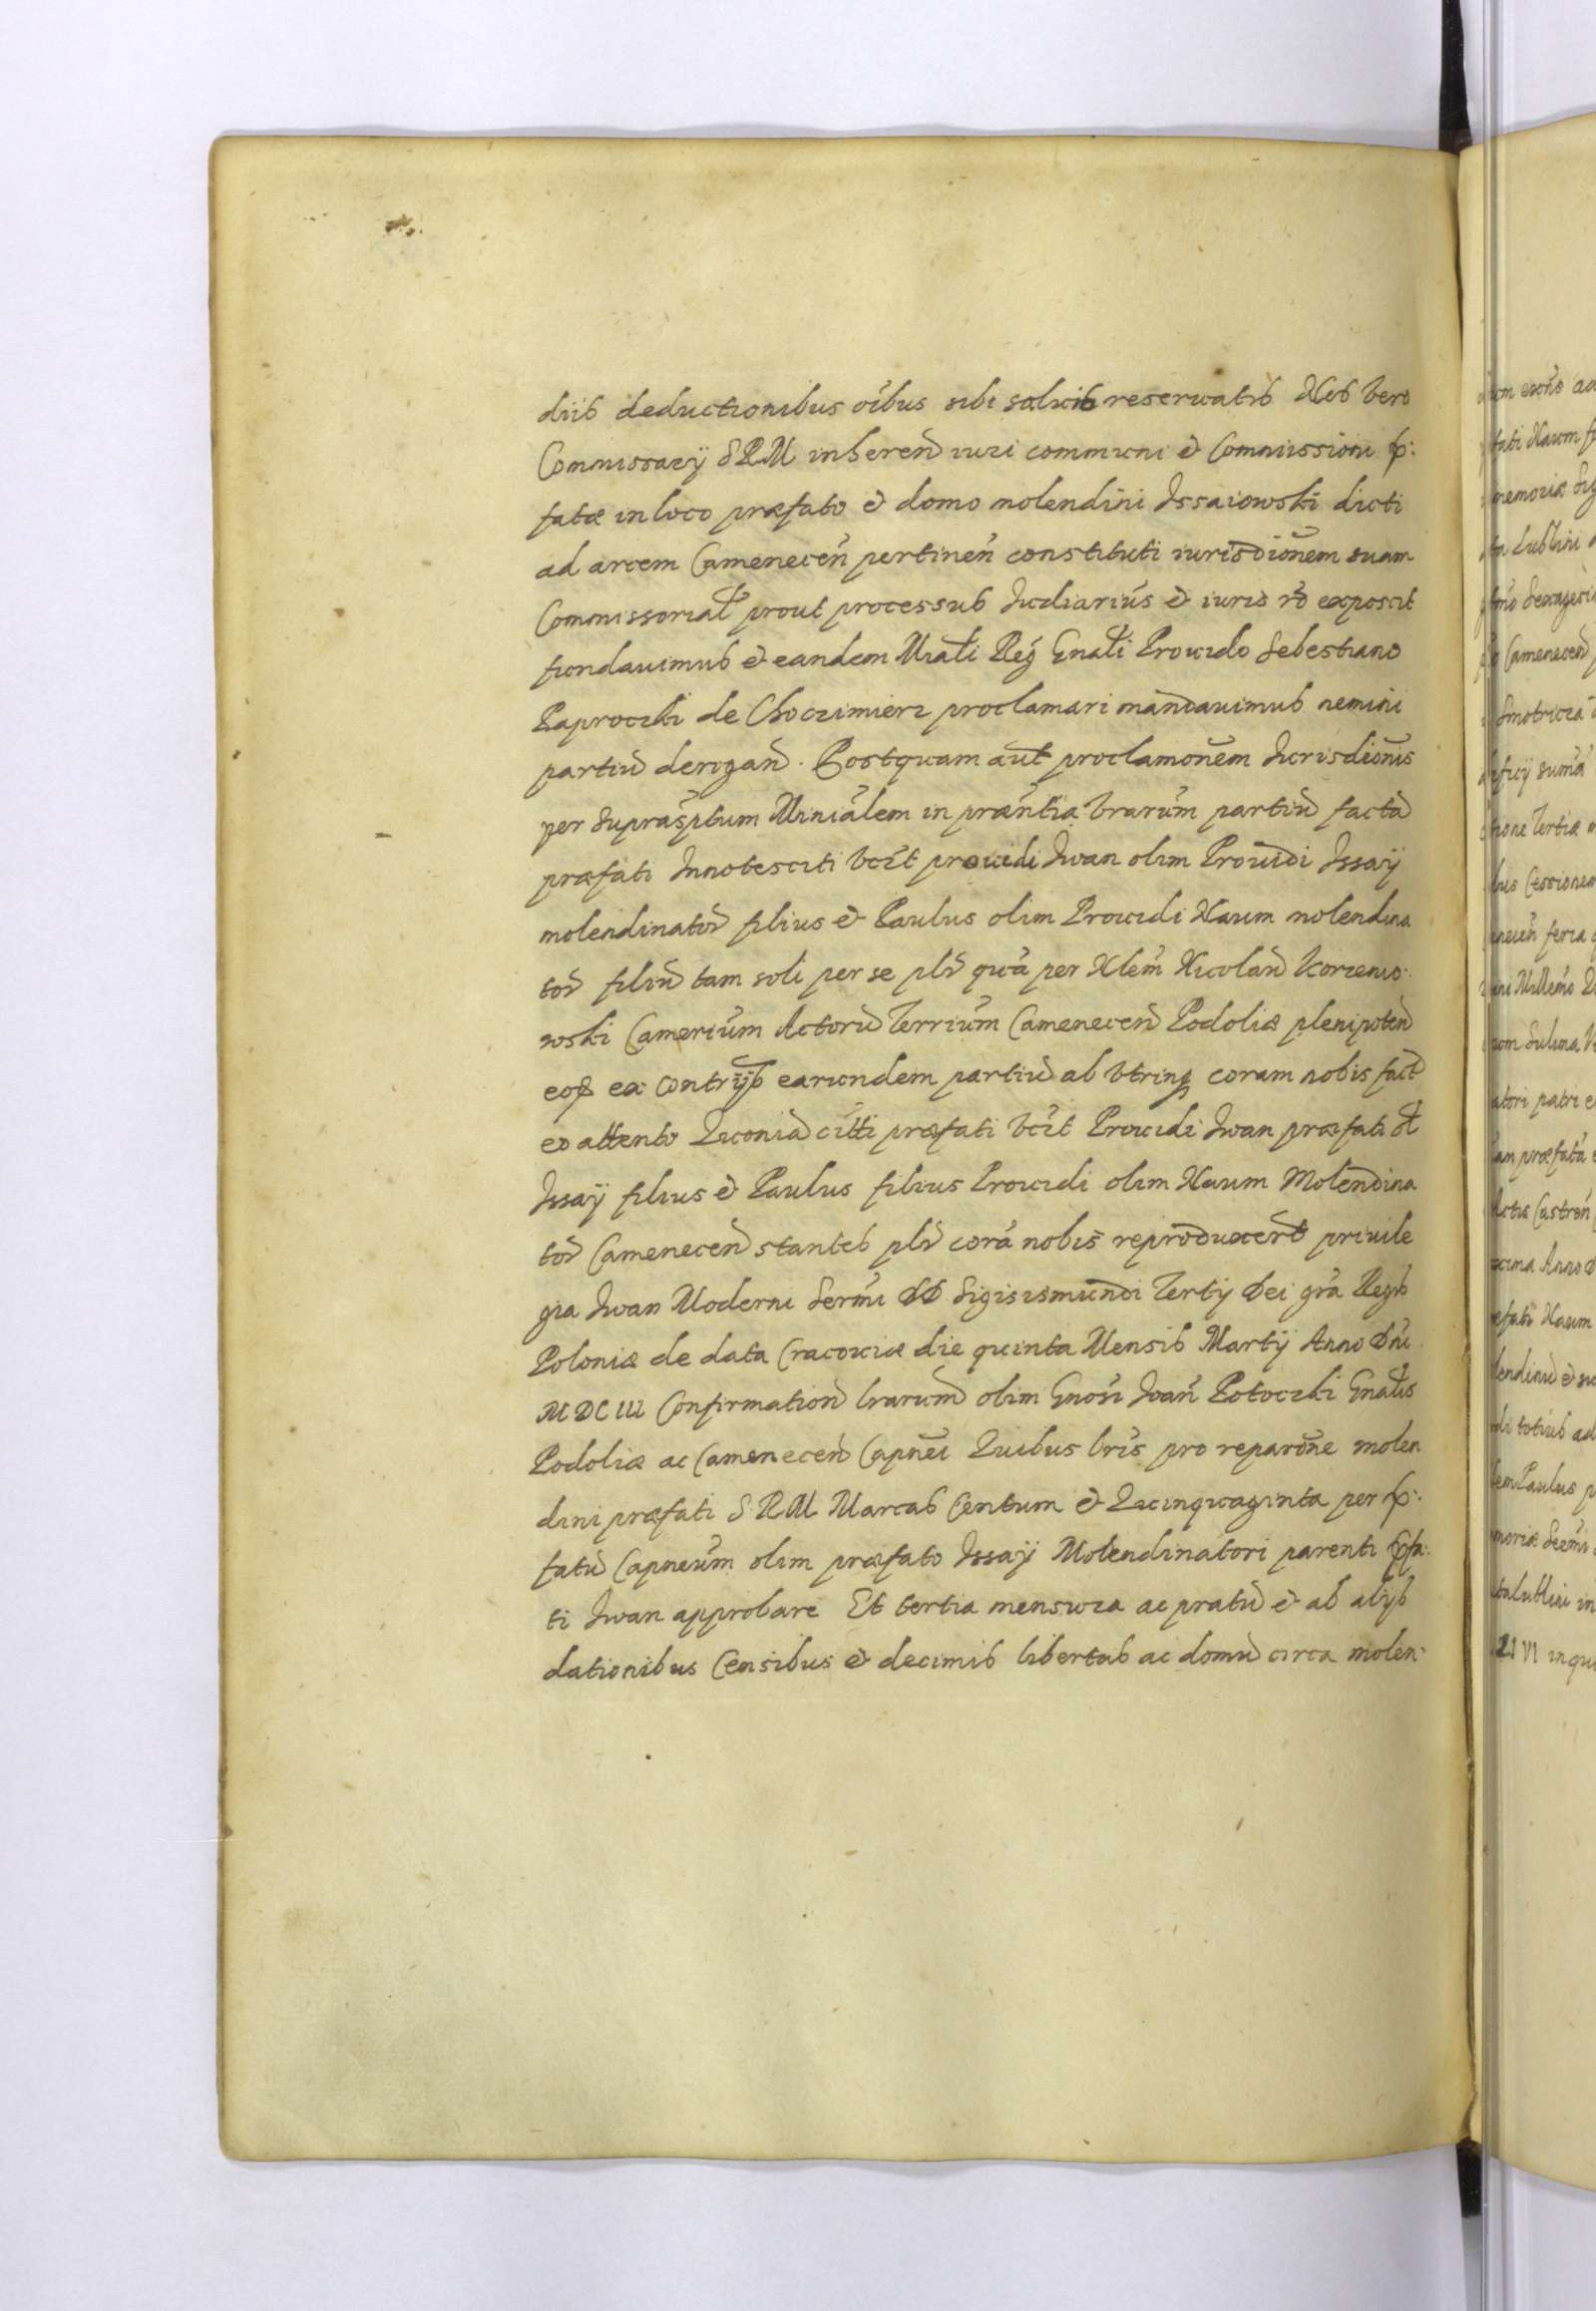 diis deductionibus oibus sibi saluis reseruatis Nos Vero
Commissarij SRM inheren iuri communi et Commissioni p:
fatæ in loco præfato et domo molendini Issaiowski dicti
ad arcem Camenecen pertinen constituti iurisdionem suam
Commissorial prout processus Iudiarius et iuris ro exposcit
fundauimus et eandem Miali Reg Gnali Prouido Sebestiano
Paproczki de Choczimierz proclamari mandauimus nemini
partiu derogan. Postquam aut proclamonem Iurisdionis
per suprasptum Minialem in præntia vrarum partiu facta
præfati Innotesciti vcit prouidi Iwan olim Prouidi Issaÿ
molendinator filius et Paulus olim Prouidi Naum molendina
tor filiu tam soli per se plr qua per Nlem Nicolau Korzenio:
wski Camerium Actoru Terrium Camenecen Podoliæ plenipoten
eos ex contrijs earundem partiu ab vtrinq coram nobis fact
eo attento Quonia citti præfati vcit Prouidi Iwan præfati ol
Issaÿ filius et Paulus filius Prouidi olim Naum Molendina
tor Camenecen stantes plr cora nobis reproduxert priuile
gia Iwan Moderni Sermi DD Sigisismundi Tertij Dei gra Regis
Poloniæ de data Cracouiæ die quinta Mensis Martij Anno Dni
MDCIII Confirmation lrarum olim Gnosi Ioan Potoczki Gnalis
Podoliæ ac Camenecen Capnei Quibus lris pro reparone molen
dini præfati S RM Marcas Centum et Quinquaginta per p:
fatu Capneum olim præfato Issaÿ Molendinatori parenti pfa:
ti Iwan approbare Et tertia mensura ac pratu et ab alijs
dationibus Censibus et decimis libertas ac domu circa molen: